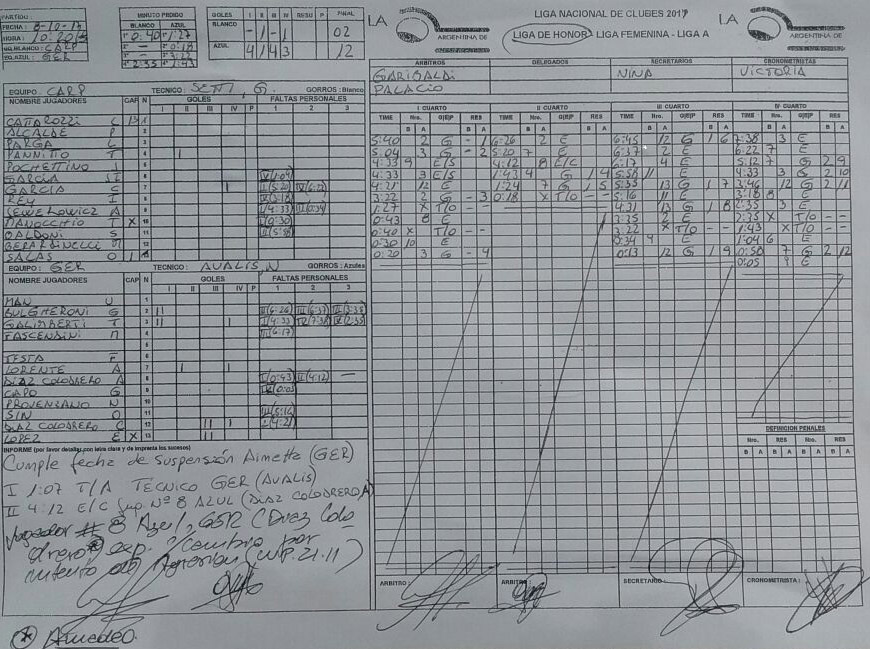 PARTIDO:
FECHA: 8-10-17
HORA: 10:20
EQ. BLANCO: CARP
EQ. AZUL: GER
MINUTO PEDIDO
BLANCO AZUL
0:40 1:27
— 0:18
— 3:22
2:35 1:43
GOLES I II III IV RESU P FINAL
BLANCO - 1 - 1 02
AZUL 4 1 4 3 12
LA ARGENTINA DE
LIGA NACIONAL DE CLUBES 2017
LIGA DE HONOR LIGA FEMENINA - LIGA A
LA ARGENTINA DE
ARBITROS DELEGADOS SECRETARIOS CRONOMETRISTAS
GARIBALDI NINA VICTORIA
PALACIO
EQUIPO: CARP TECNICO: SETTI, G. GORROS: Blanco
NOMBRE JUGADORES CAP N GOLES FALTAS PERSONALES
I II III IV P 1 2 3
CATTAROZZI C
ALCALDE P 2
PARGA L 3
YANNITTO T 4
POCHETTINO I 5
GARCIA SI 6
GARCIA C 7
REY I 8
SEWELOWICZ A 9
MANOCCHIO T X 10
BALDONI S 11
BERARDINELLI M 12
SALAS O
EQUIPO: GER TECNICO: AVALIS, N GORROS: Azules
NOMBRE JUGADORES CAP N GOLES FALTAS PERSONALES
I II III IV P 1 2 3
MAN U 1
BULGHERONI G 2 II II(6:26) III(6:37) III(3:35)
GALIMBERTI T 3 II I I(4:33) IV(7:38) IV(2:35)
FASCENDINI M 4 III(6:17)
TESTA F
LORENTE A 7
DIAZ COLODRERO A 8 I(0:43) II(4:12) —
CAPO G 9 IV(0:05)
PROVENZANO N 10
SIN O 11 III(5:16)
DIAZ COLODRERO C 12 III I I(4:21)
LOPEZ E X 13 II
I CUARTO II CUARTO III CUARTO IV CUARTO
TIME Nro. G|E|P RES TIME Nro. G|E|P RES TIME Nro. G|E|P RES TIME Nro. G|E|P RES
B A B A B A B A B A B A B A B A
5:40 2 G - 1 6:26 2 E 6:45 12 G 1 6 7:38 3 E
5:04 3 G - 2 5:20 7 E 6:37 2 E 6:22 7 E
4:33 9 E/S 4:12 8 E/C 6:17 4 E 5:12 7 G 2 9
4:33 3 E/S 1:43 4 G 1 4 5:58 11 E 4:33 3 G 2 10
4:21 12 E 1:24 7 G 1 5 5:35 13 G 1 7 3:46 12 G 2 11
3:22 2 G - 3 0:18 X T/O - - 5:16 11 E 3:18 8 E
1:27 X T/O - - 4:31 13 G 1 8 2:35 3 E
0:43 8 E 3:35 2 E 2:35 X T/O - -
0:40 X T/O - - 3:22 X T/O - - 1:43 X T/O - -
0:30 10 E 0:34 9 E 1:04 6 E
0:20 3 G - 4 0:13 12 G 1 9 0:58 7 G 2 12
0:05 9 E
DEFINICION PENALES
Nro. RES Nro. RES
B A B A B A B A
INFORME (por favor detallar con letra clara y de imprenta los sucesos)
Cumple fecha de suspensión Aimetta (GER)
I 1:07 T/A TECNICO GER (AVALIS)
II 4:12 E/C Nº 8 AZUL (DIAZ COLODRERO A)
Jugador # 8 Azul, GER (Diaz Colo
drero) exp. c/cambio por
intento de Agresión (WP. 21.11)
ARBITRO: ARBITRO: SECRETARIO: CRONOMETRISTA: